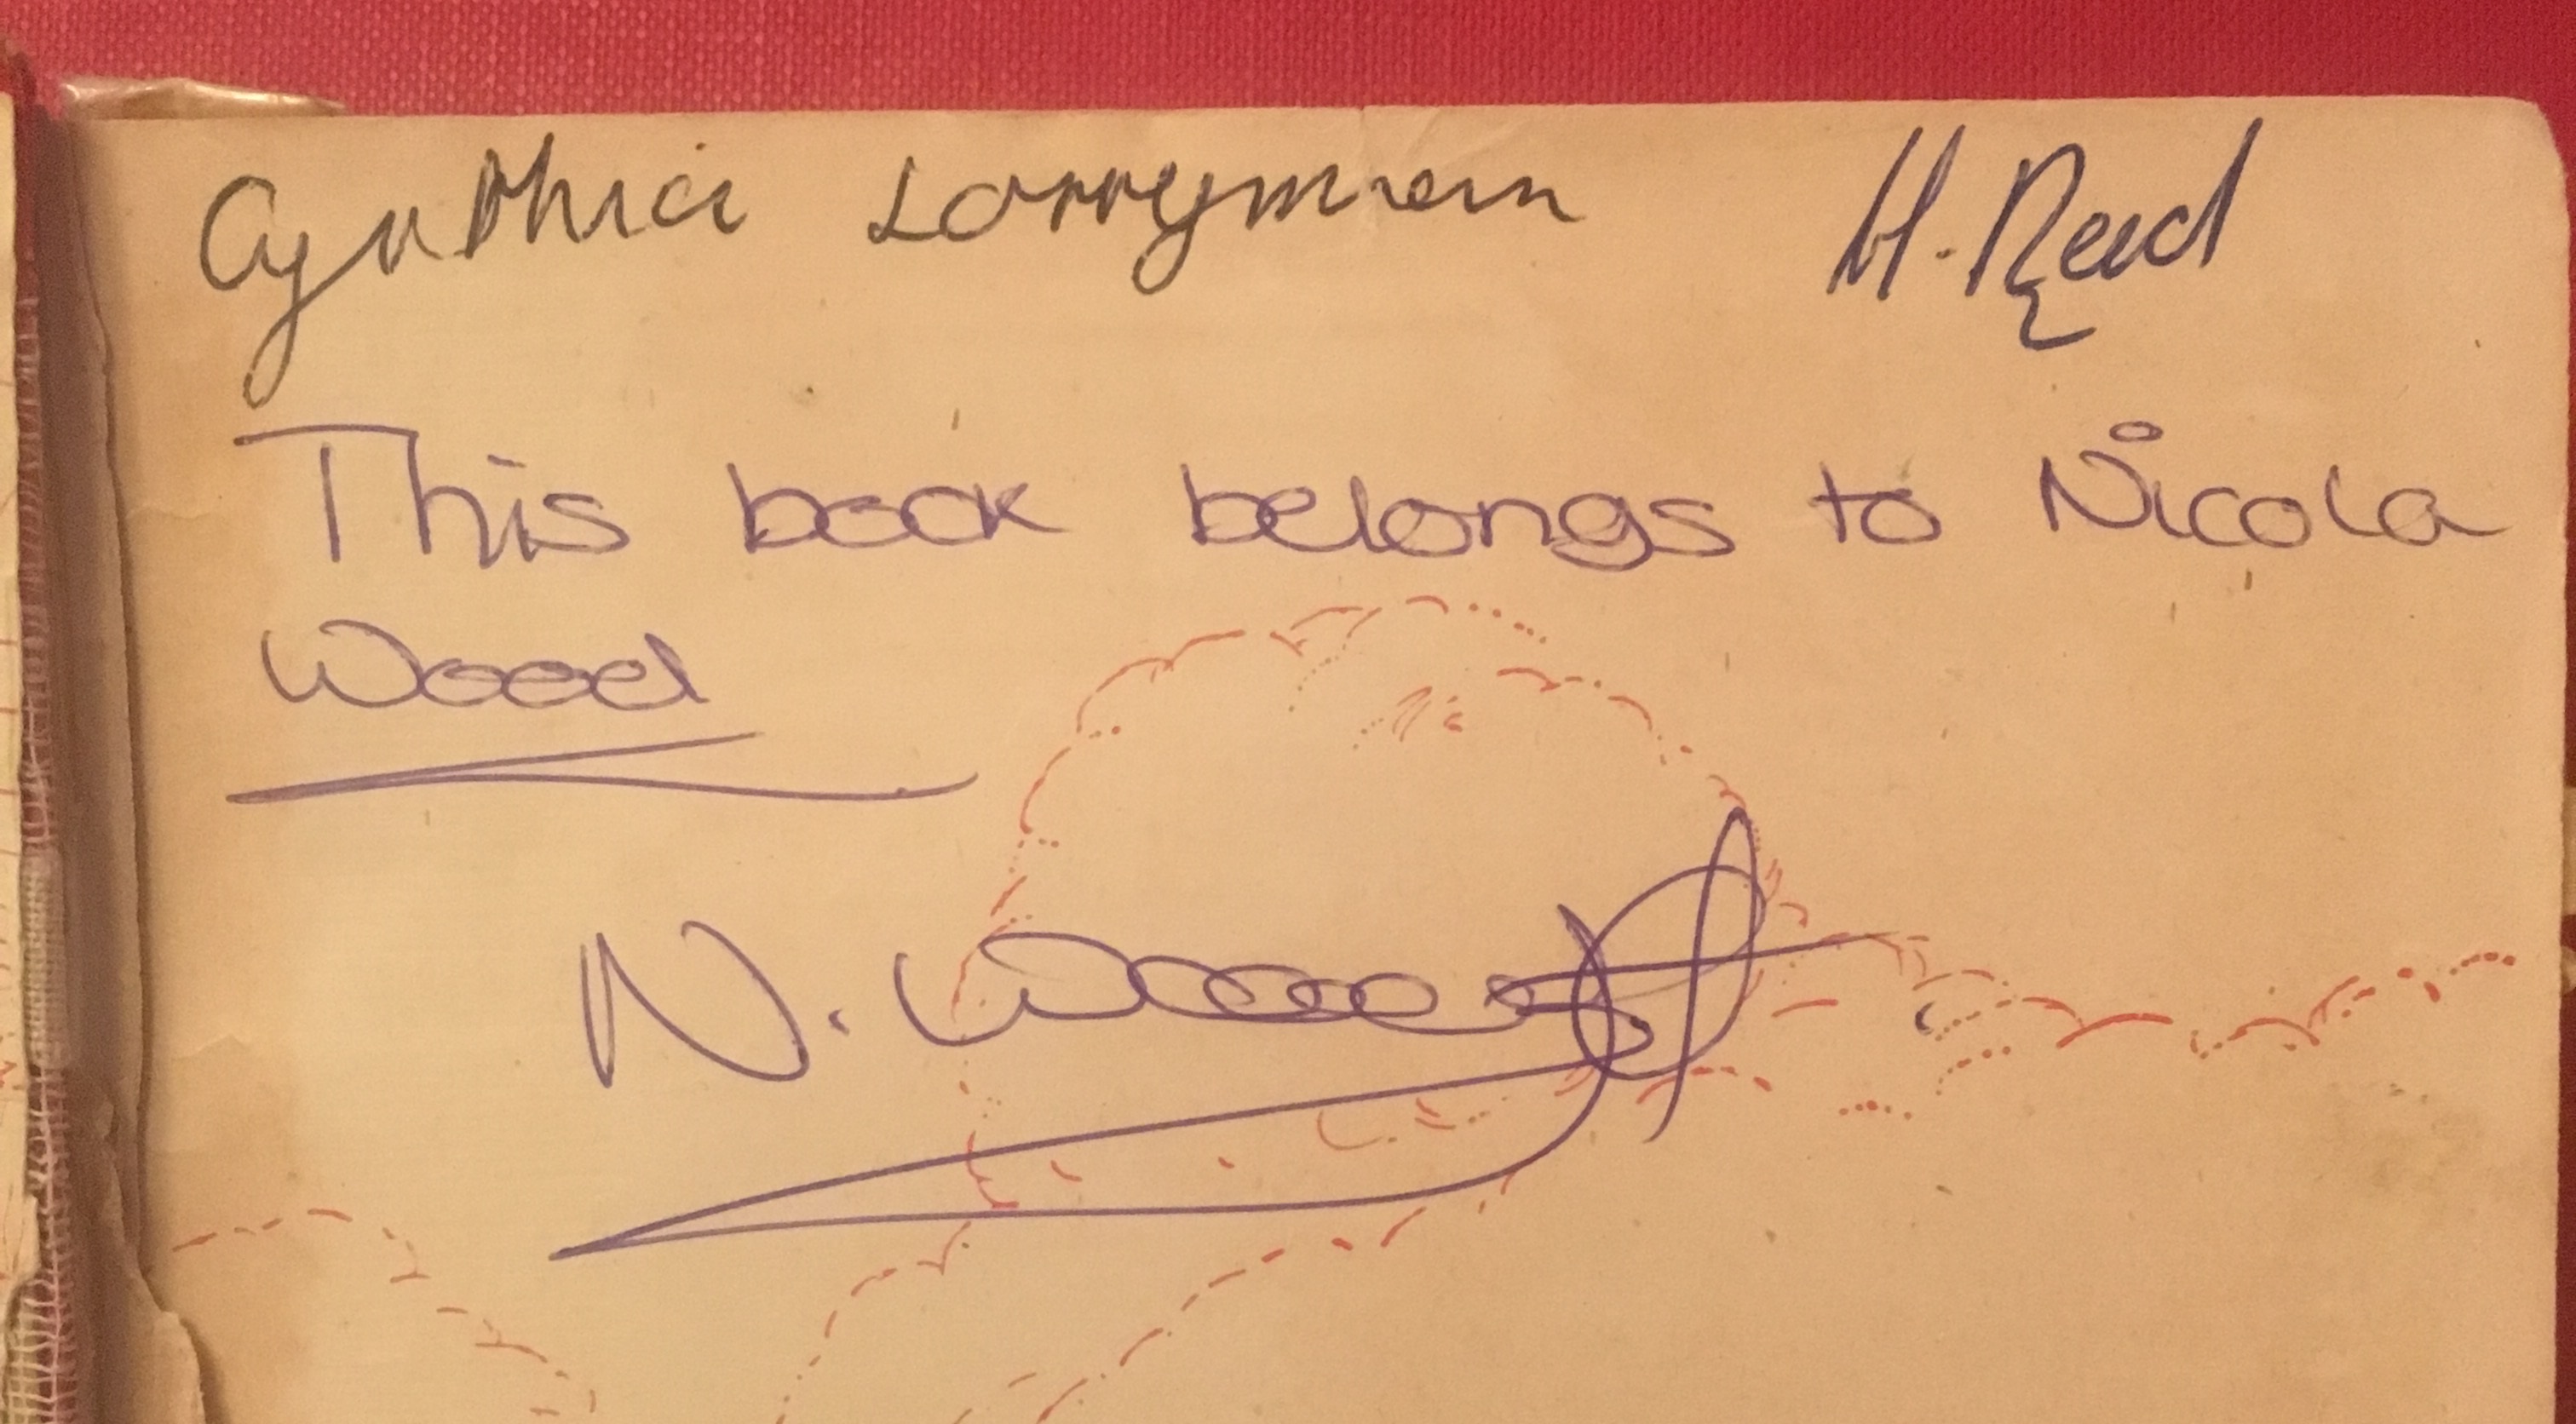 Cynthia Lorryman H. Read
This book belongs to Nicola
Wood
N. Wood